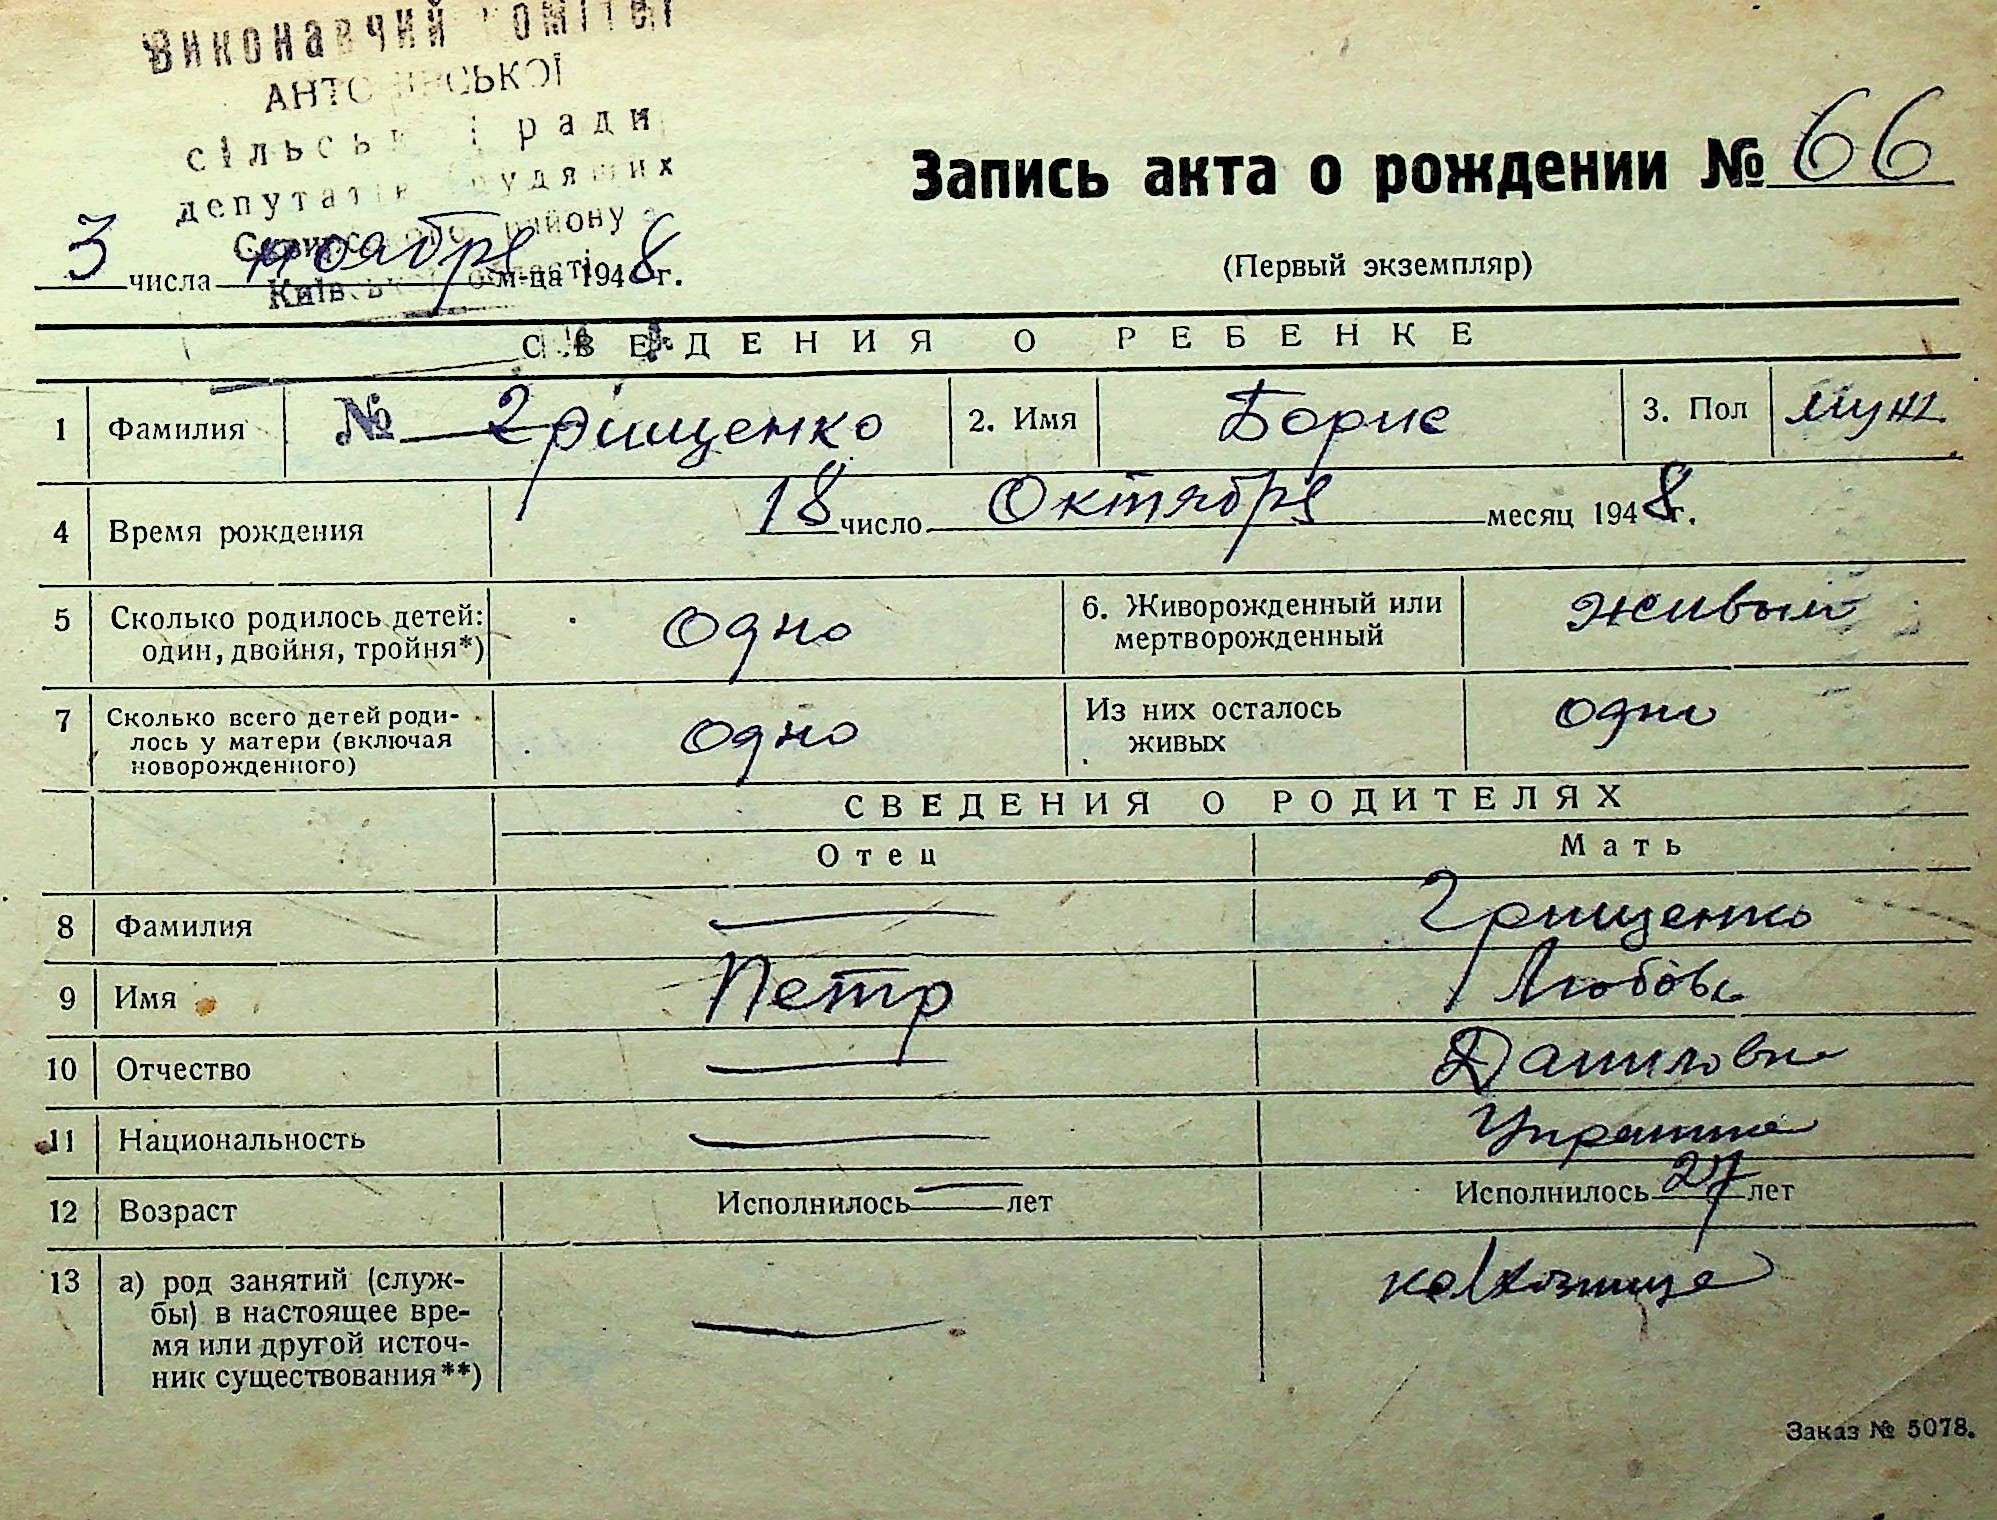 Виконавчий комітет
сільської ради
депутатів трудящих
району
Київської області
Запись акта о рождении № 66
(Первый экземпляр)
3 числа ноября м-ца 1948 г.
СВЕДЕНИЯ О РЕБЕНКЕ
1 Фамилия № Грищенко 2. Имя Борис 3. Пол муж.
4 Время рождения 18 число Октября месяц 1948 г.
5 Сколько родилось детей: один, двойня, тройня*) одно 6. Живорожденный или мертворожденный живым
7 Сколько всего детей роди-
лось у матери (включая
новорожденного) одно Из них осталось живых одно
СВЕДЕНИЯ О РОДИТЕЛЯХ
Отец Мать
8 Фамилия — Грищенко
9 Имя Петр Любовь
10 Отчество — Даниловна
11 Национальность —
12 Возраст Исполнилось — лет Исполнилось 27 лет
13 а) род занятий (служ-
бы) в настоящее вре-
мя или другой источ-
ник существования**) — колхозница
Заказ № 5078.